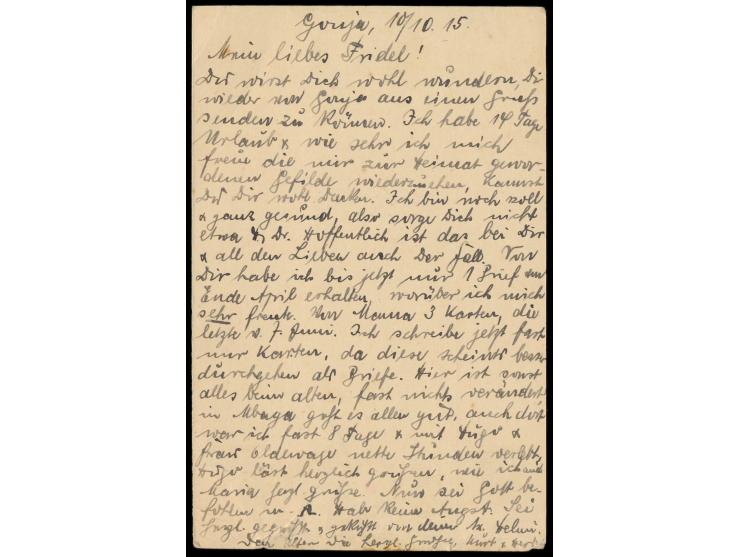 Gonja, 10/10. 15.
Mein liebes Fridel!
Du wirst Dich wohl wundern, Dir
wieder von Gonja aus einen Gruß
senden zu können. Ich habe 14 Tage
Urlaub & wie sehr ich mich
freue die mir zur Heimat gewor-
denen Gefilde wiederzusehen, kannst
Du Dir wohl denken. Ich bin noch voll
& ganz gesund, also sorge Dich nicht
etwa Hoffentlich ist das bei Dir
& all den Lieben auch der Fall. Von
Dir habe ich bis jetzt nur 1 Brief von
Ende April erhalten, worüber ich mich
sehr freute. Von Mama 3 Karten, die
letzte v. 7. Juni. Ich schreibe jetzt fast
nur Karten, da diese scheints besser
durchgehen als Briefe. Hier ist sonst
alles beim alten, fast nichts verändert
in Mbaga geht es allen gut, auch dort
war ich fast 8 Tage & mit Hugo &
Frau Oldewage nette Stunden verlebt,
Hugo läst herzlich grüßen, wie ich auch
Maria herzl grüße. Nun sei Gott be-
fohlen Hab keine Angst. Sei
herzl. gegrüßt & geküßt von denn
Den herzl. Grüße, Kurt &